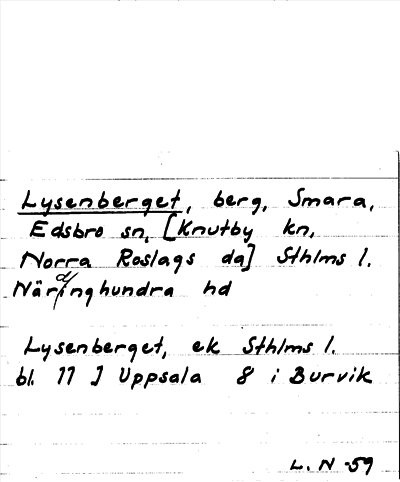 Lysenberget, berg, Smara,
Edsbro sn, [Knutby kn,
Norra Roslags da] Sthlms l.
Närdinghundra hd
Lysenberget, ek Sthlms l.
bl. 11 J Uppsala 8 i Burvik
L. N -59